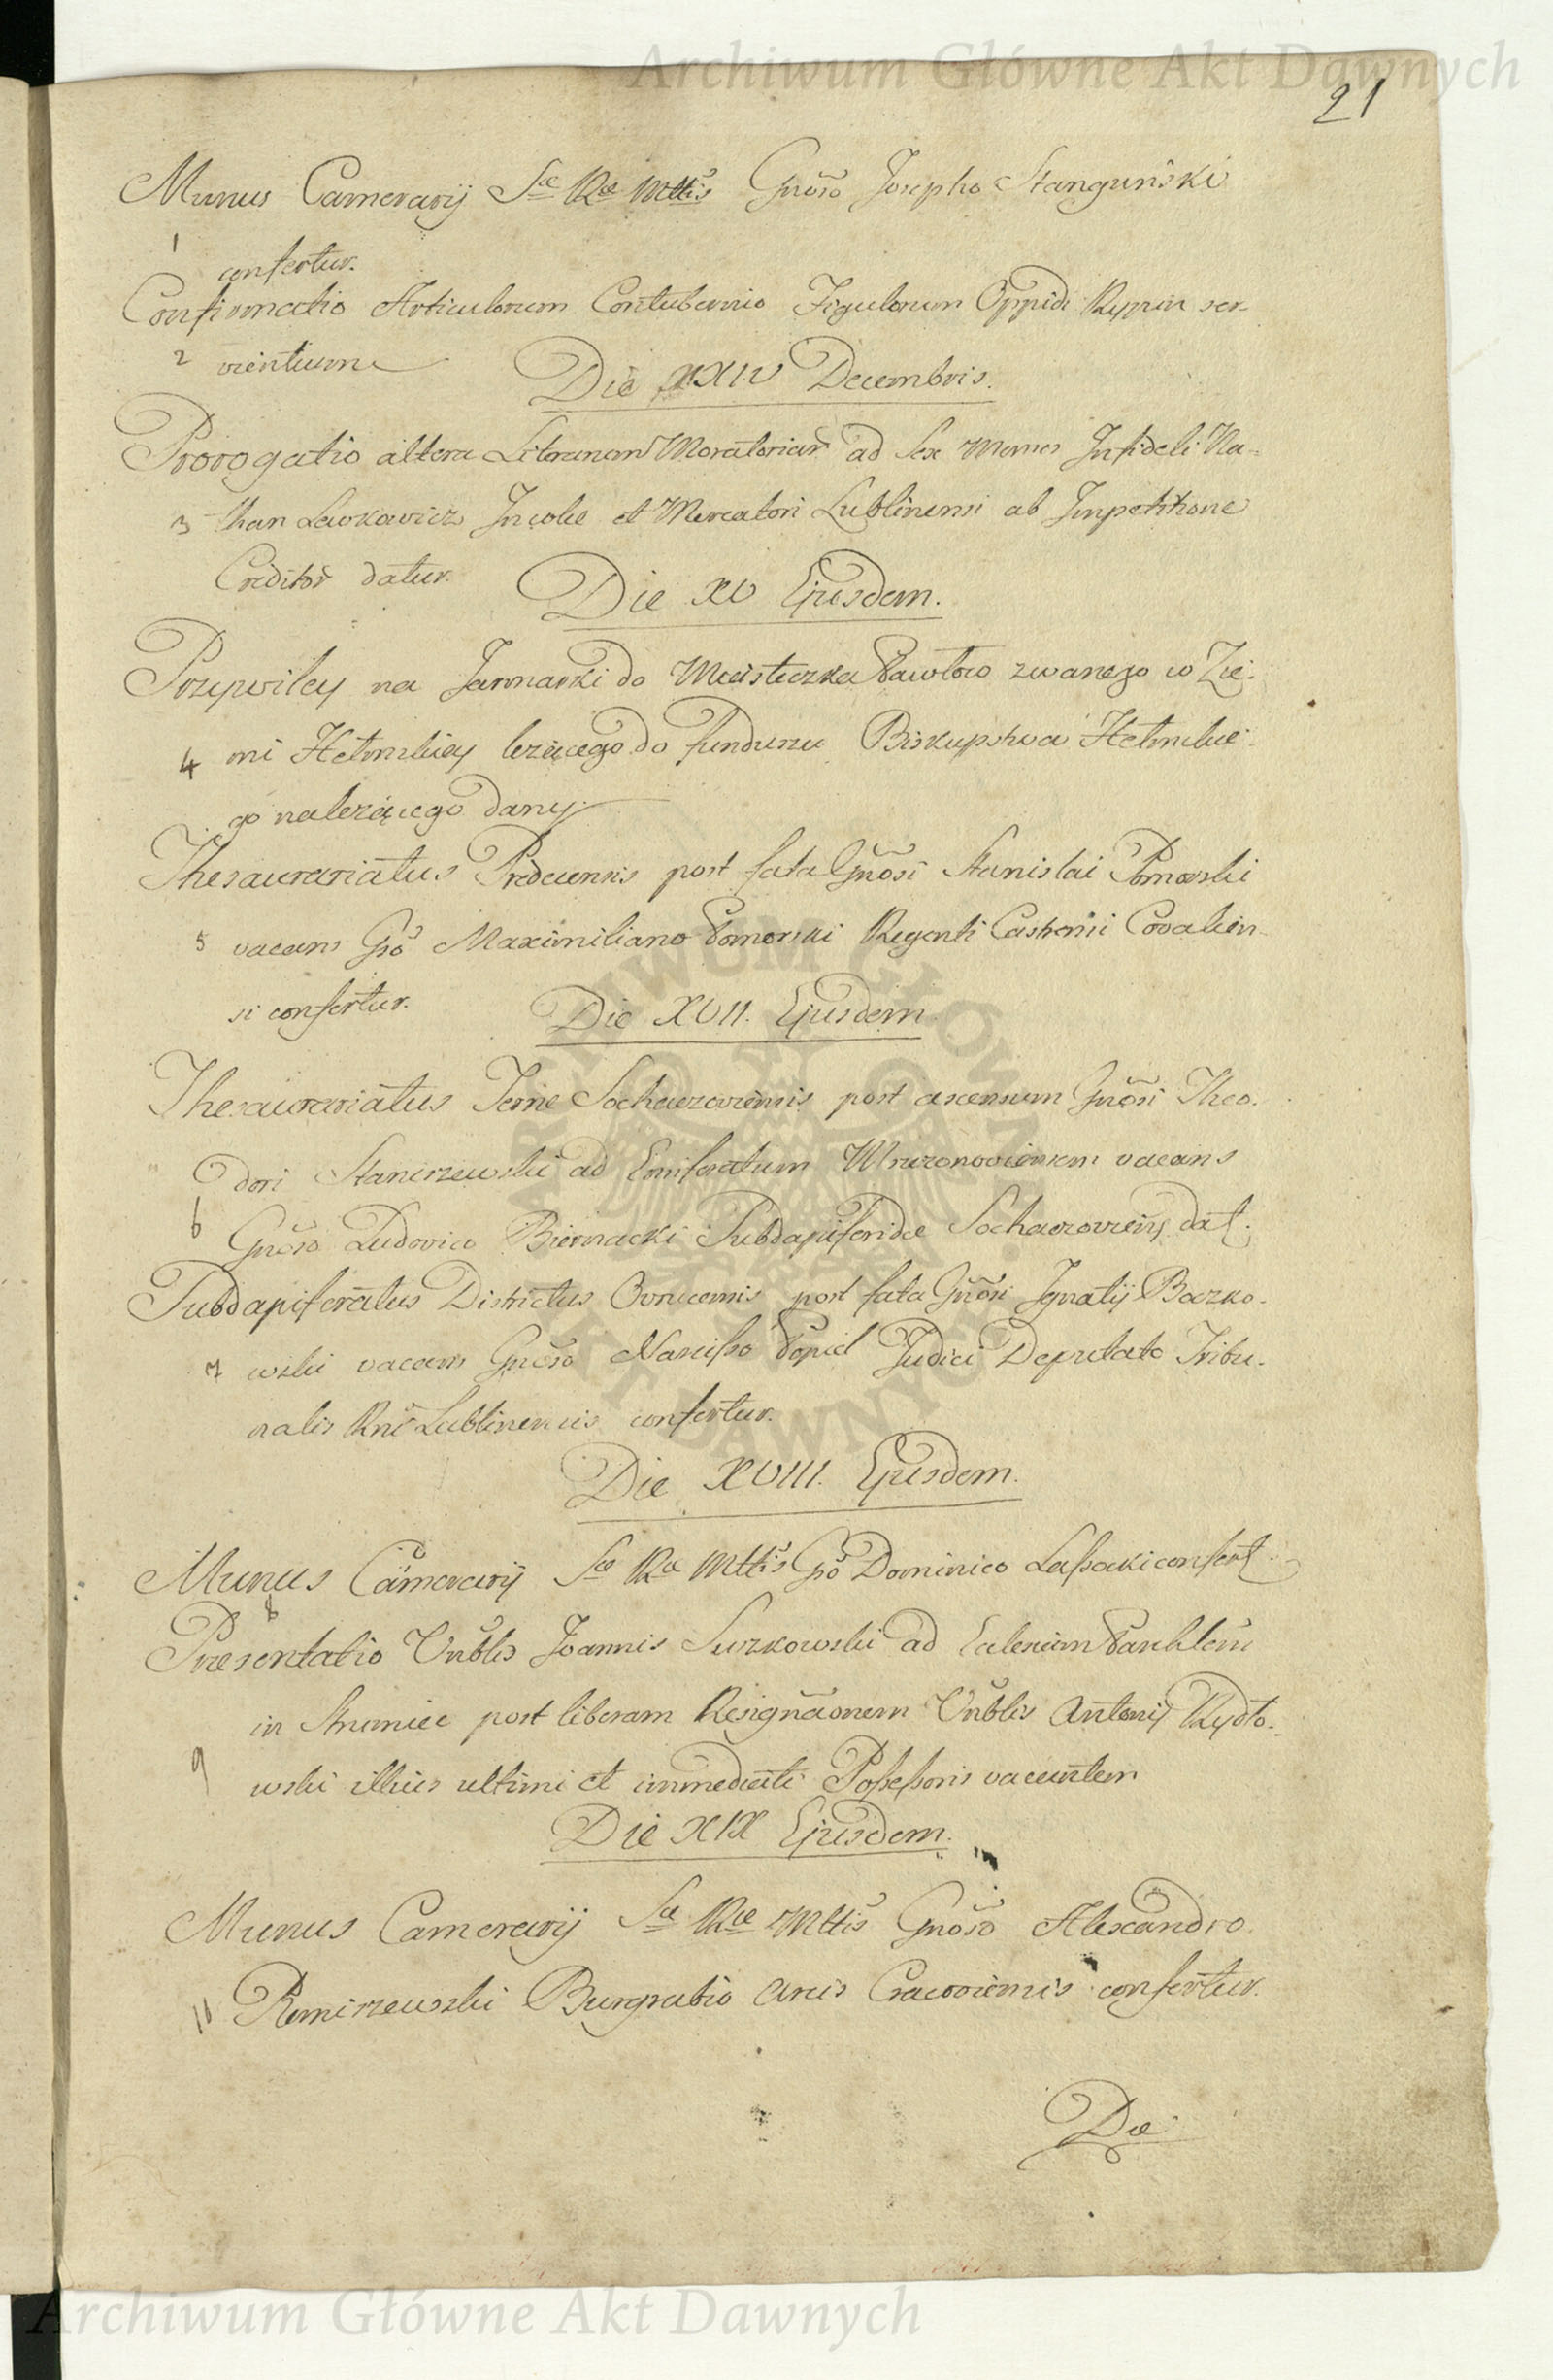 Archiwum Główne Akt Dawnych
21
Munus Camerarij Sæ Ræ Mttis Gnoso Josepho Stanguński
1
confertur.
Confirmatio Articulorum Contubernio Figulorum Oppidi Rypin ser-
2 vientium
Die XXIV Decembris.
Prorogatio altera Literarum Moratoriar ad Sex Menses Infideli Na-
3 than Lewkowicz Incolæ et Mercatori Lublinensi ab Impetitione
Creditor datur.
Die XV Ejusdem.
Przywiley na Jarmarki do Miasteczka Pawłow zwanego w Zie-
4 mi Hełmskiey leżącego do funduszu Biskupstwa Hełmskie-
go należącego dany.
Thesaurariatus Predecensis post fata Gnosi Stanislai Pomorski
5 vacans Gso Maximiliano Pomorski Regenti Castrensi Covalien-
si confertur.
Die XVII. Ejusdem
Thesaurariatus Terræ Sochaczoviensis post ascensum Gnosi Theo-
dori Stanirzewski ad Ensiferatum Mszczonoviensem vacans
6 Gnoso Ludovico Biernacki Subdapiferidæ Sochaczoviens dat.
Subdapiferatus Districtus Ovrucensis post fata Gnosi Ignatij Baczko-
7 wski vacans Gnoso Narcisso Popiel Judici Deputato Tribu-
nalis Rni Lublinensis confertur.
Die XVIII. Ejusdem.
Munus Camerarij Sæ Ræ Mttis Gso Dominico Lassaki confert.
8
Præsentatio Vnblis Joannis Surkowski ad Eclesiam Parchlem
in Strumiec post liberam Resignaonem Vnblis Antonij Rydlo-
9 wski illius ultimi et immediati Possessoris vacantem
Die XIX Ejusdem.
Munus Camerarij Sæ Ræ Mttis Gnoso Alexandro
10 Remiszewski Burgrabio Arcis Cracoviensis confertur.
Die
ARCHIWUM GŁÓWNE AKT DAWNYCH
Archiwum Główne Akt Dawnych